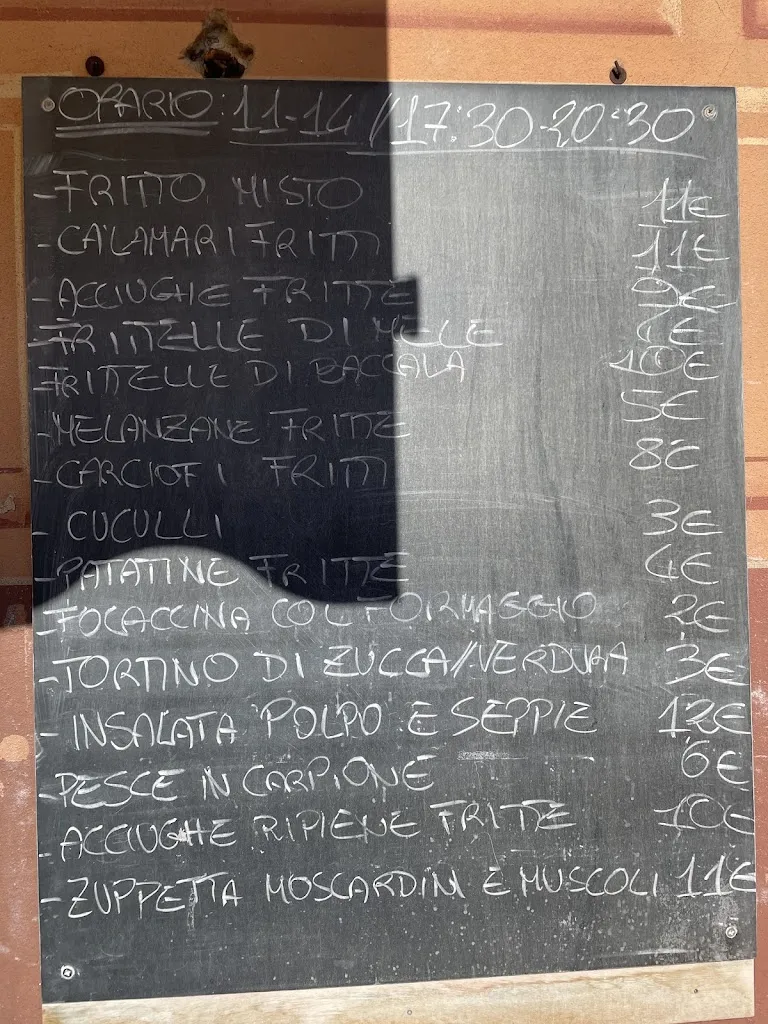 ORARIO: 11-14 / 17:30-20:30
-FRITTO MISTO 11€
-CALAMARI FRITTI 11€
-ACCIUGHE FRITTE 9€
-FRITTELLE DI MELE
FRITTELLE DI BACCALA 10€
-MELANZANE FRITTE 5€
-CARCIOFI FRITTI 8€
- CUCULLI 3€
-PATATINE FRITTE 4€
-FOCACCINA COL FORMAGGIO 2€
-TORTINO DI ZUCCA//VERDURA 3€
- INSALATA POLPO E SEPPIE 12€
-PESCE IN CARPIONE 6€
-ACCIUGHE RIPIENE FRITTE 10€
-ZUPPETTA MOSCARDINI E MUSCOLI 11€